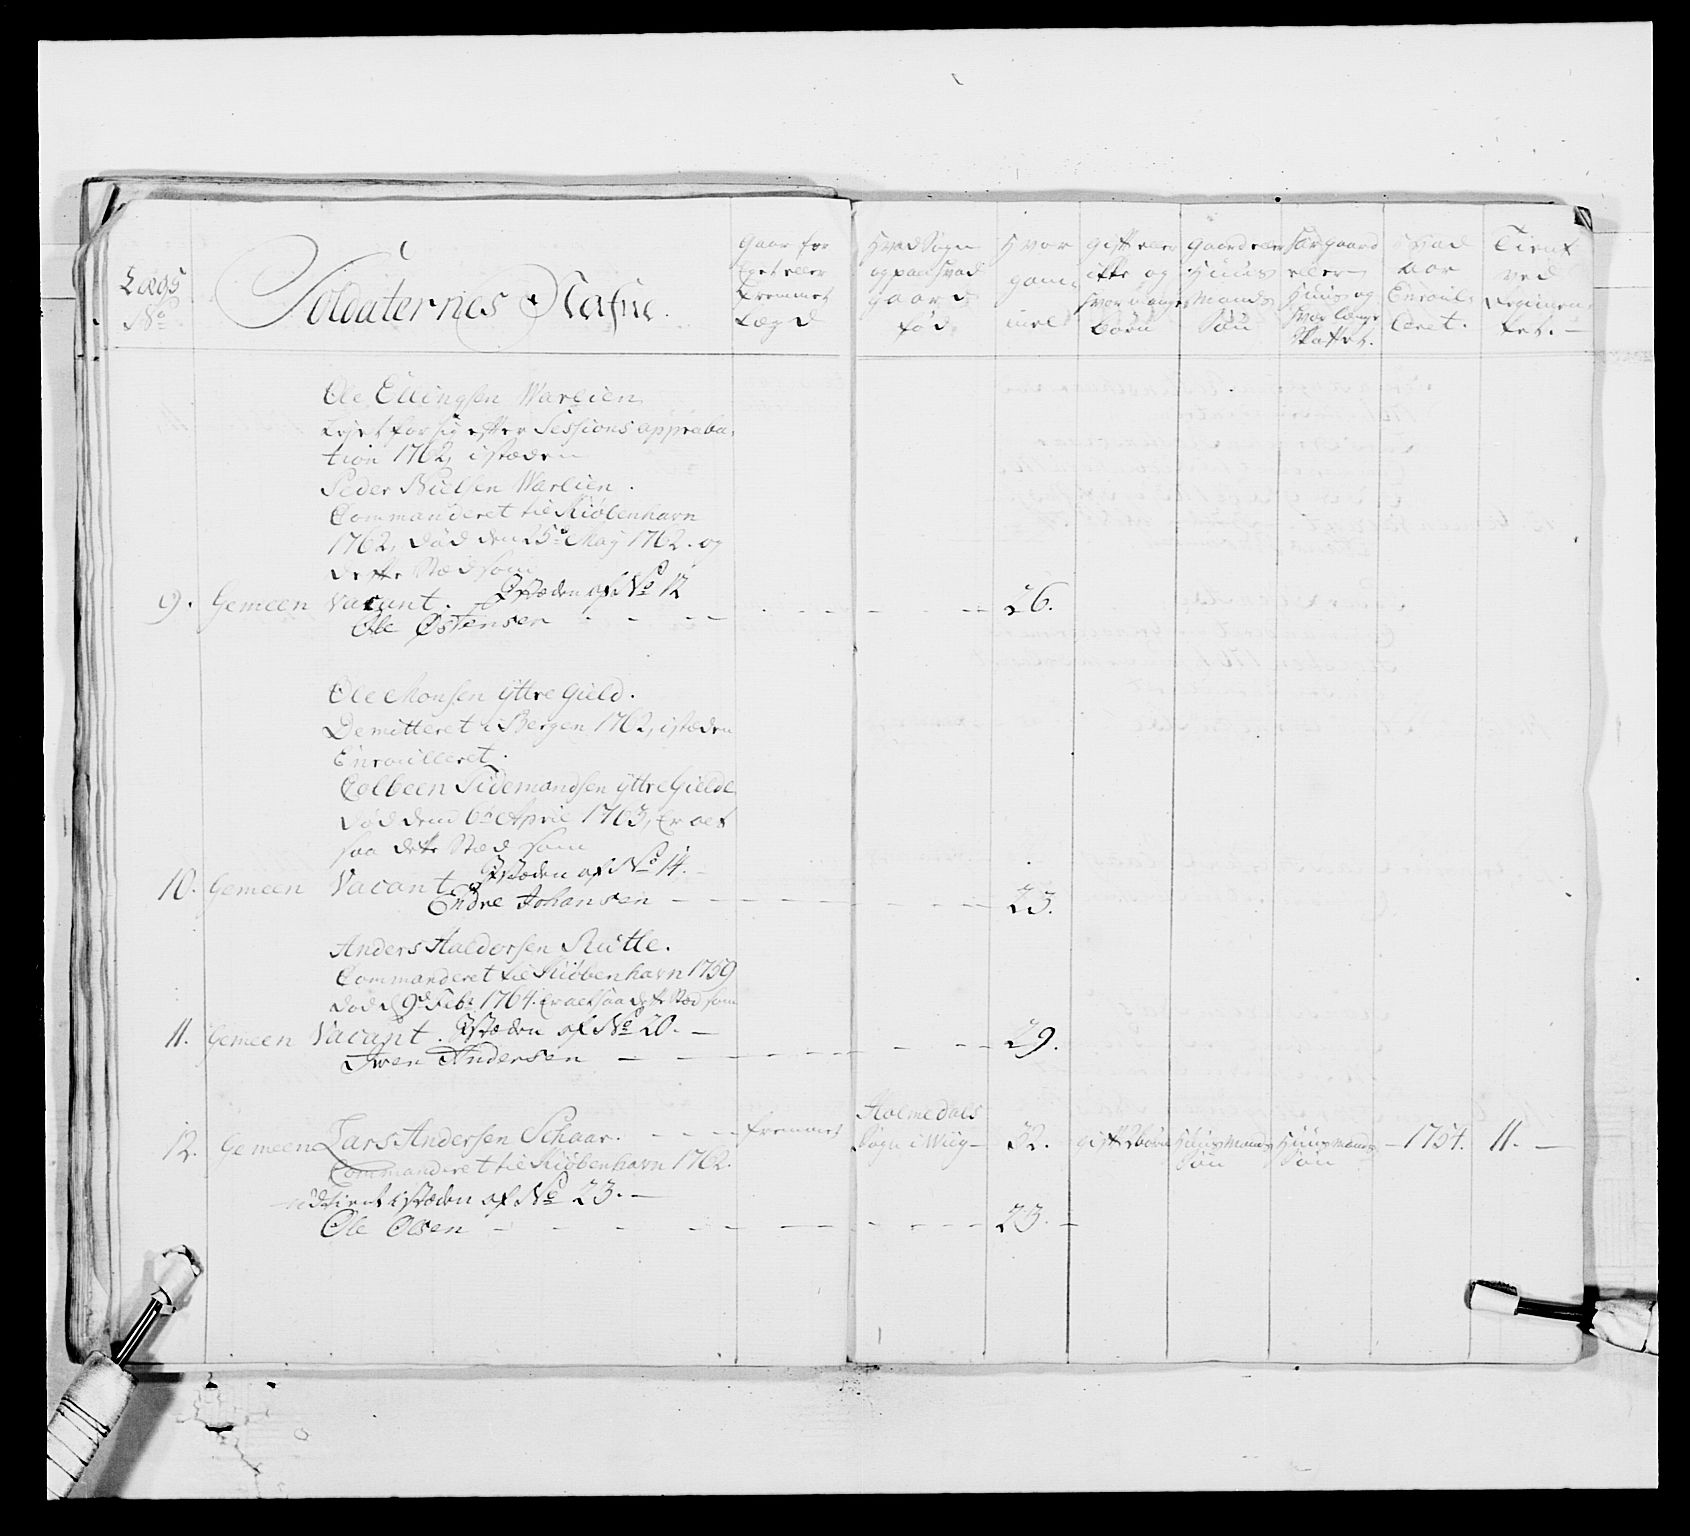 Lægs
No
Soldaternes Nafne.
Gaar for
Eget eller
fremmet
Lægd
Hvad Sogn
og paa hvad
gaard
fød
Hvor
gam-
mel
gift eller
ikke og
hvor mange
børn
Gaard eller
Huus
Mands
Søn
har gaard
eller
Huus og
hvor længe
skattet.
Hvad
aar
Enroul-
leret.
Tient
ved
Regimen-
tet. –
Ole Ellingsen Warlien
Lejet for sig efter Sessions approba-
tion 1762, i stæden
Peder Nielsen Warlien.
Commanderet til Kiøbenhavn
1762, død den 25de May 1762. og
dette Stæd som
9. Gemeen Vacant. I Stæden af No 12
Ole Østensen – – – – 26.
Ole Monsen yttre Gield.
Demitteret i Bergen 1762, i stæden
Enroulleret.
Colbeen Sidemandsen yttre Gielde
død dend 6te April 1763, Er alt
saa dette Stæd som
10. Gemeen Vacant I Stæden af No 14. –
Endre Johansen – – – – 23.
Anders Haldorsen Rutle.
Commanderet til Kiøbenhavn 1759
død d 9d Febr 1764. Er altsaa dette Stæd som
11. Gemeen Vacant. I Stæden af No 20. –
Iwer Andersen – – – – 29.
12. Gemeen Lars Andersen Schaar. – – – fremmet Holmedals
Sogn i Wiig – 32. gift 2 børn Huus Mands
Søn Huusmands
Søn – 1754. 11. –
Commanderet til Kiøbenhavn 1762.
udtient i Stæden af No 23. –
Ole Olsen – – – – 23. –